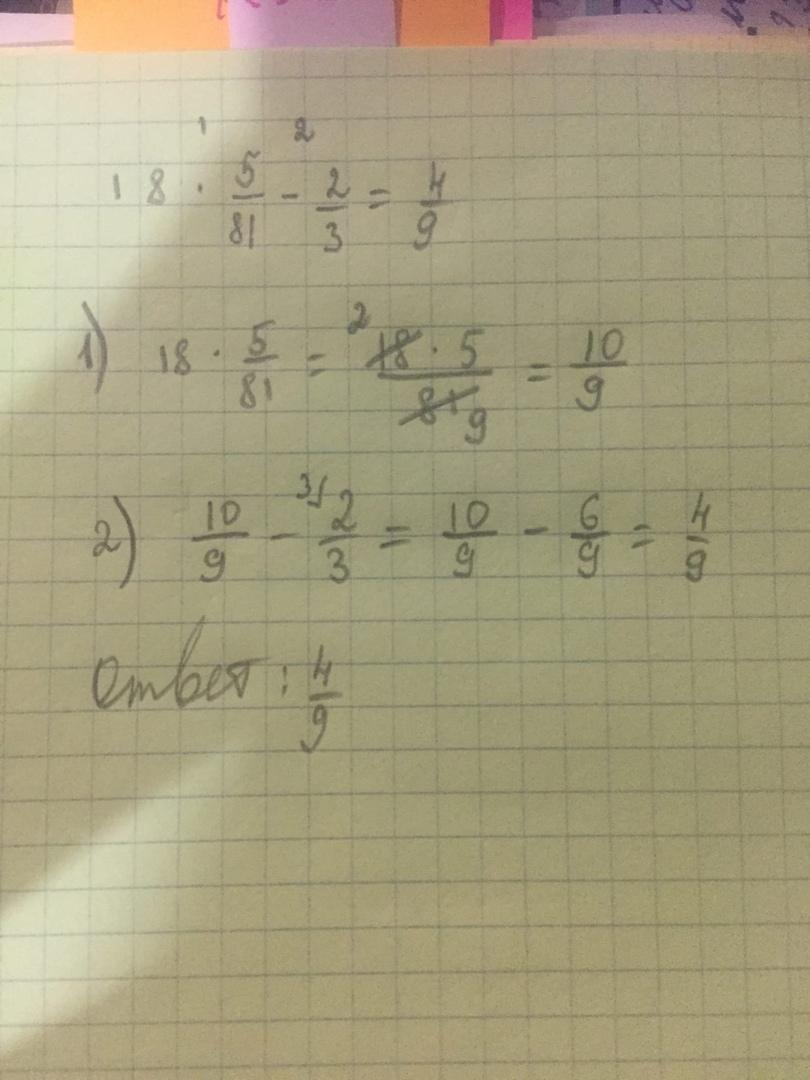 1 2
18 · 5/81 - 2/3 = 4/9
1) 18 · 5/81 = 2 18 · 5 / 81 9 = 10/9
2) 10/9 - 3) 2/3 = 10/9 - 6/9 = 4/9
Ответ: 4/9